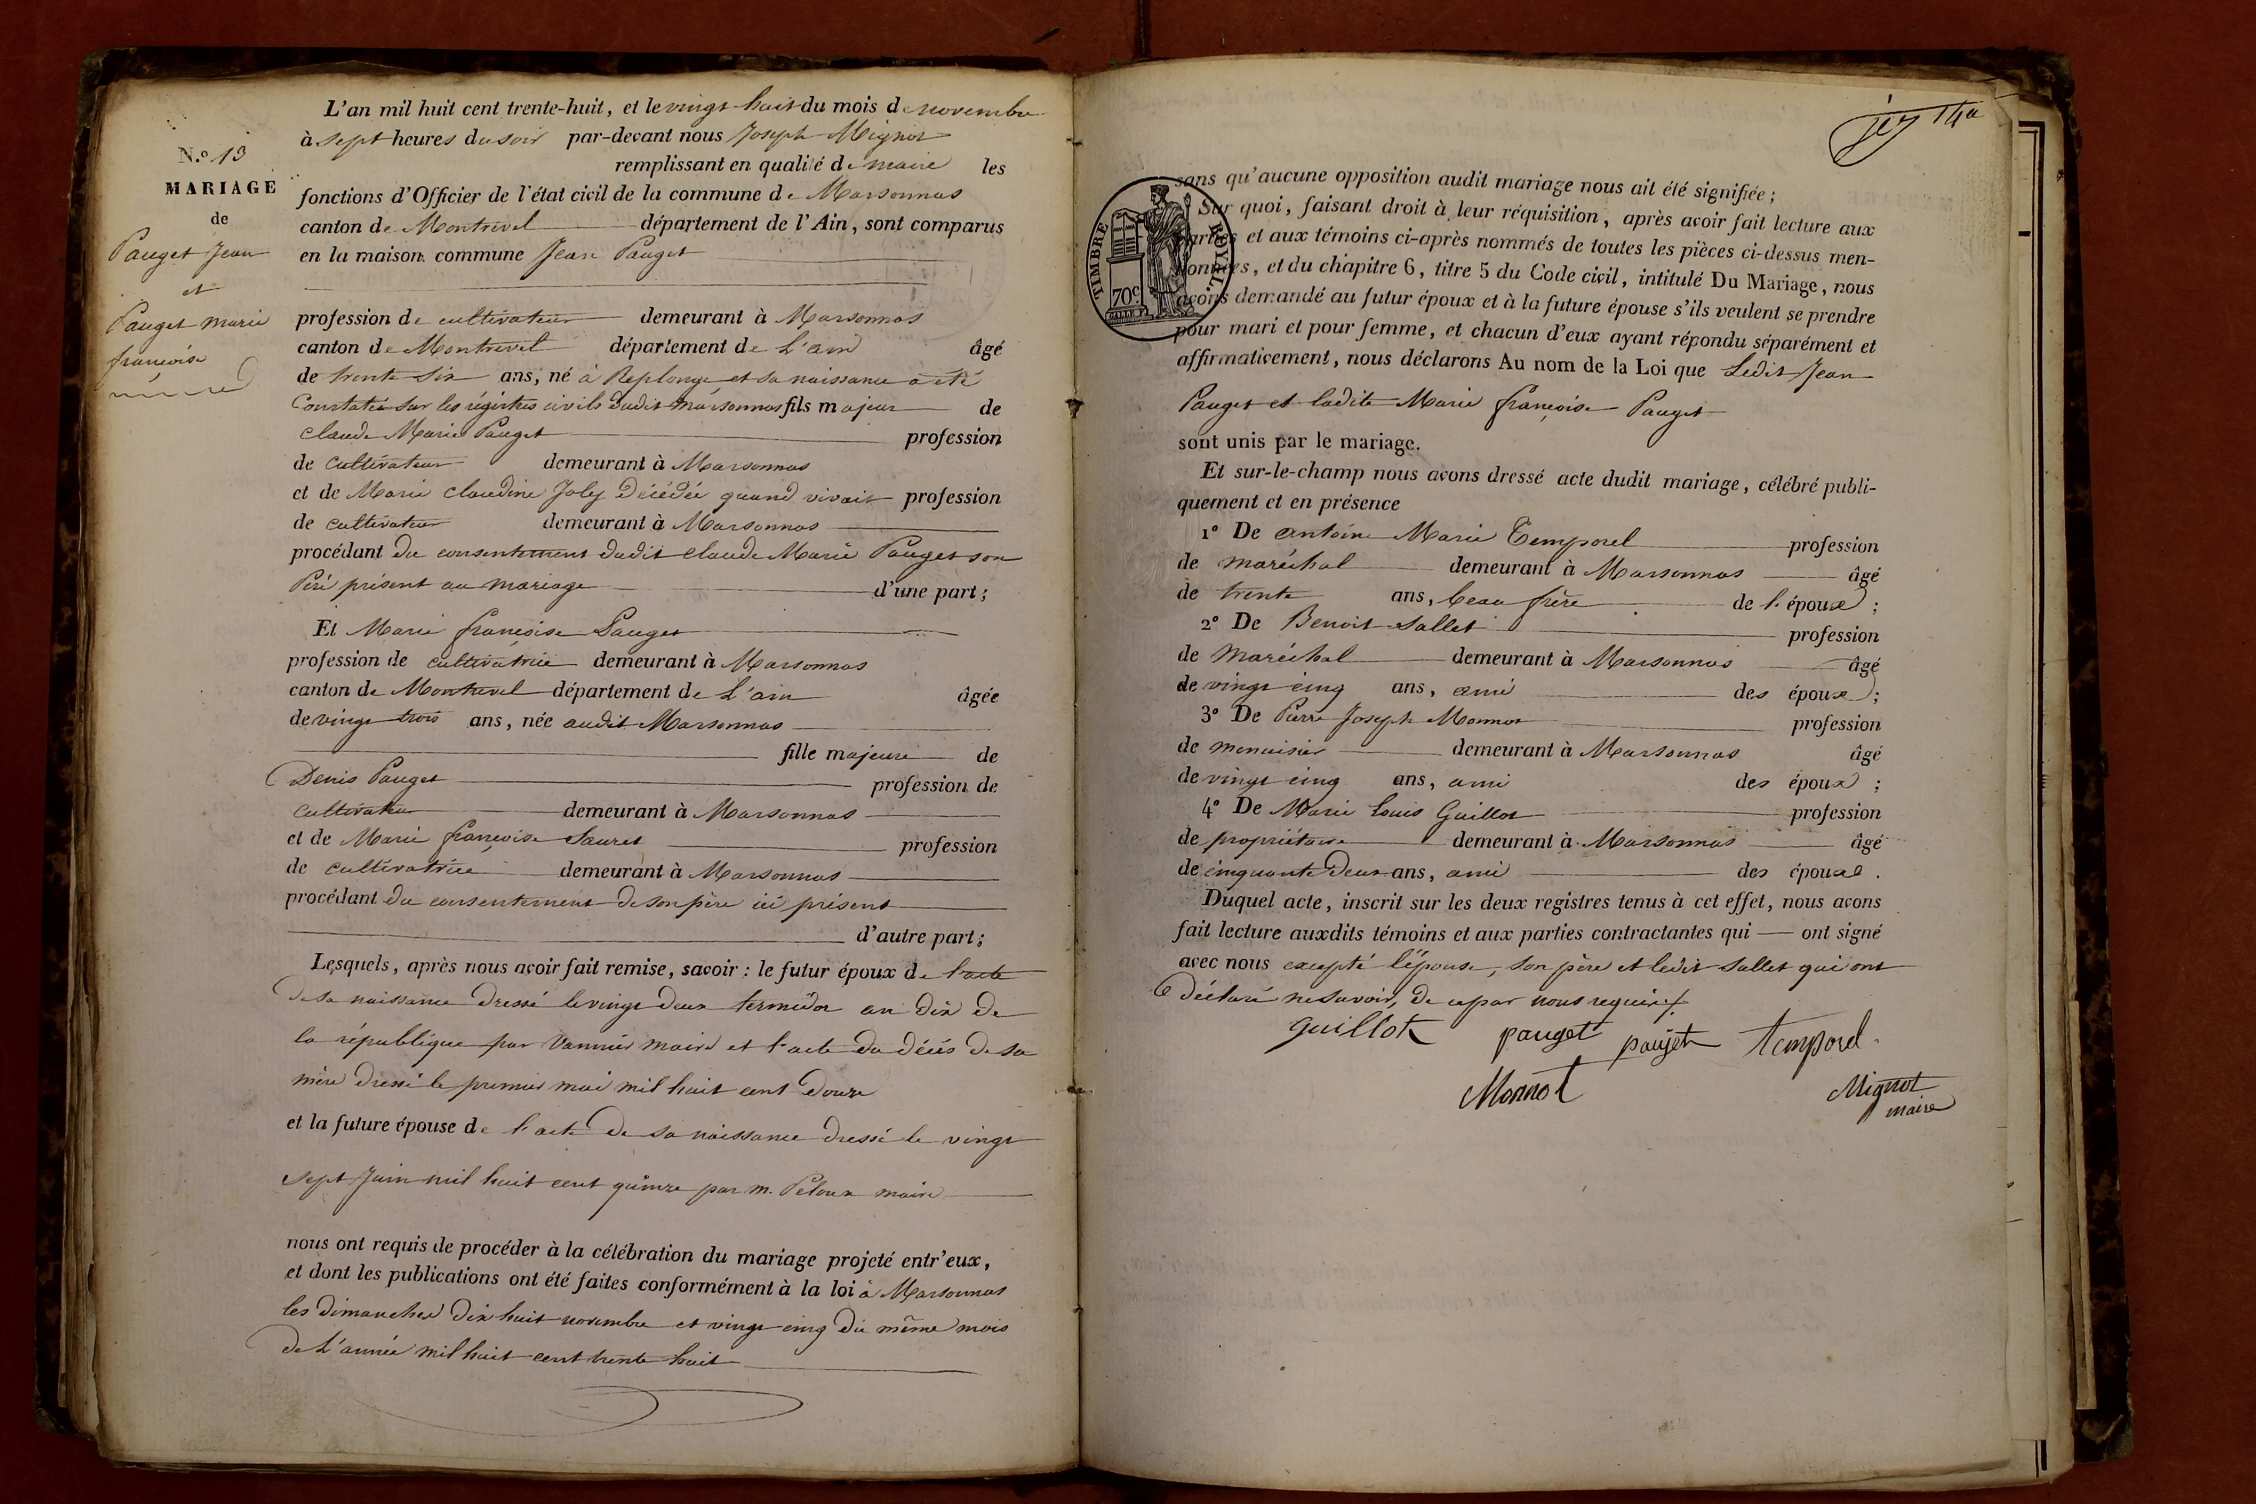 L'an mil huit cent trente-huit, et le vingt huit du mois de novembre
à sept heures du soir par-devant nous Joseph Mignot
remplissant en qualité de maire les
fonctions d'Officier de l'état civil de la commune de Marsonnas
canton de Montrevel département de l'Ain, sont comparus
en la maison commune Jean Pauget
N.o 13
MARIAGE
de
Pauget Jean
et
Pauget marie
françoise
profession de cultivateur demeurant à Marsonnas
canton de Montrevel département de L'ain âgé
de trente six ans, né à Replonge et sa naissance a été
Constatée sur les régistres civils dudit marsonnas fils majeur de
claude Marie Pauget profession
de cultivateur demeurant à Marsonnas
et de Marie claudine Joly Décédée quand vivait profession
de cultivateur demeurant à Marsonnas
procédant du consentement dudit claude Marie Pauget son
Père présent au mariage d'une part;
Et Marie françoise Pauget
profession de cultivatrice demeurant à Marsonnas
canton de Montrevel département de L'ain âgée
de vingt trois ans, née audit Marsonnas
fille majeure de
Denis Pauget profession de
cultivateur demeurant à Marsonnas
et de Marie françoise Sauret profession
de cultivatrice demeurant à Marsonnas
procédant du consentement de son père ici présent
d'autre part;
Lesquels, après nous avoir fait remise, savoir: le futur époux de l'acte
de sa naissance dressé le vingt deux termidor an dix de
la république par Vannier maire et l'acte du décès de sa
mère dressé le premier mai mil huit cent douze
et la future épouse de l'acte de sa naissance dressé le vingt
sept Juin mil huit cent quinze par m. Peloux maire
nous ont requis de procéder à la célébration du mariage projeté entr'eux,
et dont les publications ont été faites conformément à la loi à Marsonnas
les dimanches dix huit novembre et vingt cinq du même mois
de L'année mil huit cent trente huit
14
TIMBRE ROYAL.
70c
sans qu'aucune opposition audit mariage nous ait été signifiée;
Sur quoi, faisant droit à leur réquisition, après avoir fait lecture aux
parties et aux témoins ci-après nommés de toutes les pièces ci-dessus men-
tionnées, et du chapitre 6, titre 5 du Code civil, intitulé Du Mariage, nous
avons demandé au futur époux et à la future épouse s'ils veulent se prendre
pour mari et pour femme, et chacun d'eux ayant répondu séparément et
affirmativement, nous déclarons Au nom de la Loi que Ledit Jean
Pauget et ladite Marie françoise Pauget
sont unis par le mariage.
Et sur-le-champ nous avons dressé acte dudit mariage, célébré publi-
quement et en présence
1o De antoine Marie Temporel profession
de maréchal demeurant à Marsonnas âgé
de trente ans, beau frère de l'époux;
2o De Benoit Sallet profession
de Maréchal demeurant à Marsonnas âgé
de vingt cinq ans, ami des époux;
3o De Pierre Joseph Monnot profession
de menuisier demeurant à Marsonnas âgé
de vingt cinq ans, ami des époux;
4o De Marie Louis Guillot profession
de propriétaire demeurant à Marsonnas âgé
de cinquante deux ans, ami des époux.
Duquel acte, inscrit sur les deux registres tenus à cet effet, nous avons
fait lecture auxdits témoins et aux parties contractantes qui ont signé
avec nous excepté l'épouse, son père et ledit Sallet qui ont
déclaré ne savoir, de ce par nous requis.
Guillot pauget paujet temporel
Monnot Mignot
maire